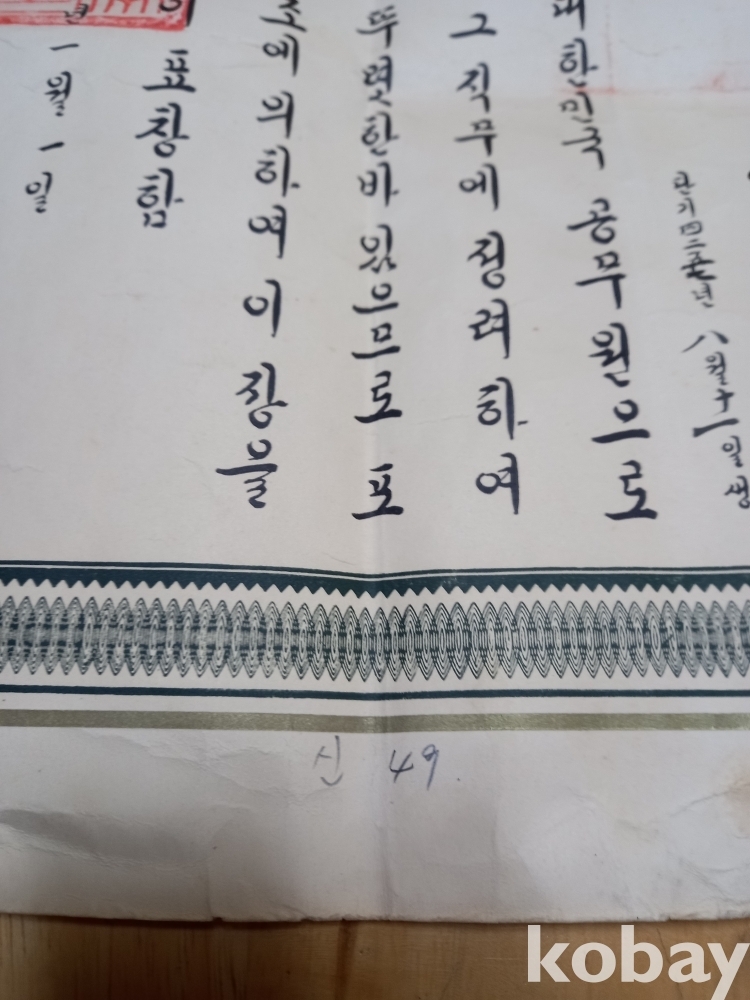 八월十一일생
대한민국 공무원으로
그 직무에 정려하여
뚜렷한바 있으므로 포
의 의하여 이 장을
표창함
一월一일
신 49.
kobay